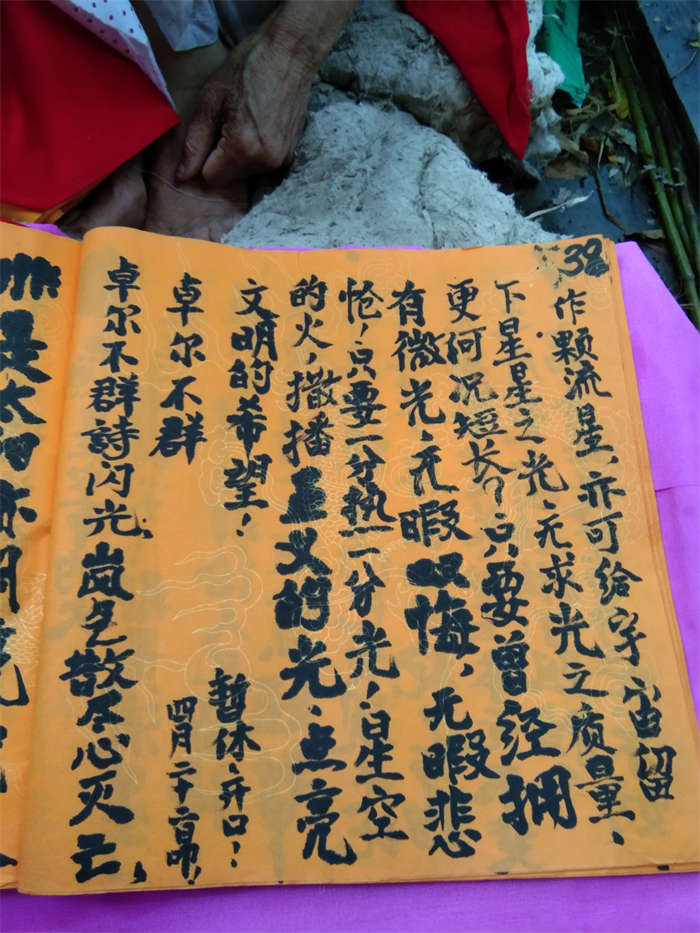 作颗流星、亦可给宇宙留
下星星之光、无求光之质量、
更何况短长？只要曾经拥
有微光、无暇叹悔，无暇悲
怆！只要一分热一分光！星空
的火，撒播重义的光、点亮
文明的希望！
暂休、开口！
卓尔不群
四月二十
卓尔不群詩闪光、岚乞散尽心灭亡、
是太阳亦